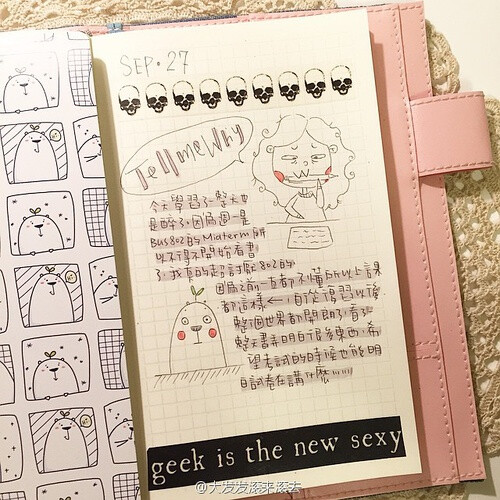 SEP·27
Tell me Why
今天學習了一整天也
是醉了,因為周一是
Bus802的Midterm所
以不得不開始看書
了,我真的超討厭802的
因為之前一直都不懂 上課
都這樣←自從復習以後
整個世界都開朗了有沒
整本書明白很多東西,希
望考試的時候也能明
白試卷在講什麼!!!!!!
geek is the new sexy
@大发发滚来滚去